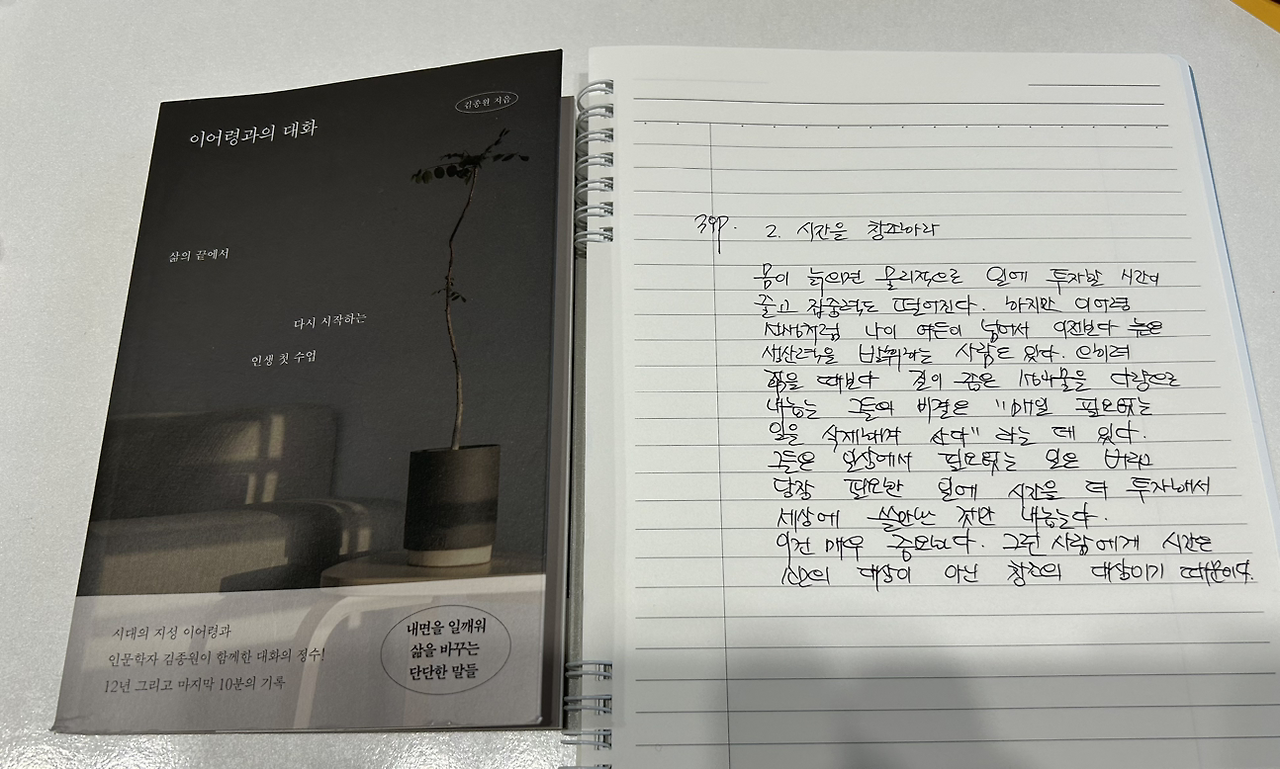 김종원 지음
이어령과의 대화
삶의 끝에서
다시 시작하는
인생 첫 수업
시대의 지성 이어령과
인문학자 김종원이 함께한 대화의 정수!
12년 그리고 마지막 10분의 기록
내면을 일깨워
삶을 바꾸는
단단한 말들
39p. 2. 시간을 창조하라
몸이 늙으면 물리적으로 일에 투자할 시간이
줄고 집중력도 떨어진다. 하지만 이어령
선생처럼 나이 여든이 넘어서 이전보다 높은
생산력을 발휘하는 사람도 있다. 오히려
젊을 때보다 질이 좋은 결과물을 다량으로
내놓는 그들의 비결은 "매일 필요없는
일을 삭제하며 산다" 라는 데 있다.
그들은 일상에서 필요없는 일은 버리고
당장 필요한 일에 시간을 더 투자해서
세상에 쓸만한 것만 내놓는다.
이건 매우 중요하다. 그런 사람에게 시간은
대상이 아닌 창조의 대상이기 때문이다.